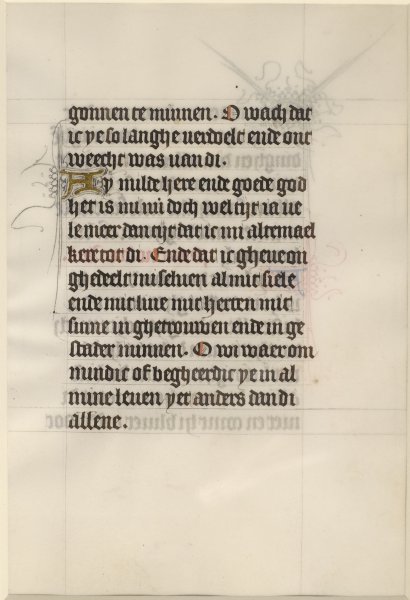 gonnen te minnen. O wach dat
ic ye so langhe verdoelt ende ont
weecht was van di.
Ay milde here ende goede god
het is mi nu doch wel tijt ia ve
le meer dan tijt dat ic mi altemael
kere tot di. Ende dat ic gheve on
ghedeelt mi selven al mit siele
ende mit live mit herten mit
sinne in ghetrouwen ende in ge
stader minnen. O wi waer om
mindic of begheerdic ye in al
mine leven yet anders dan di
allene.